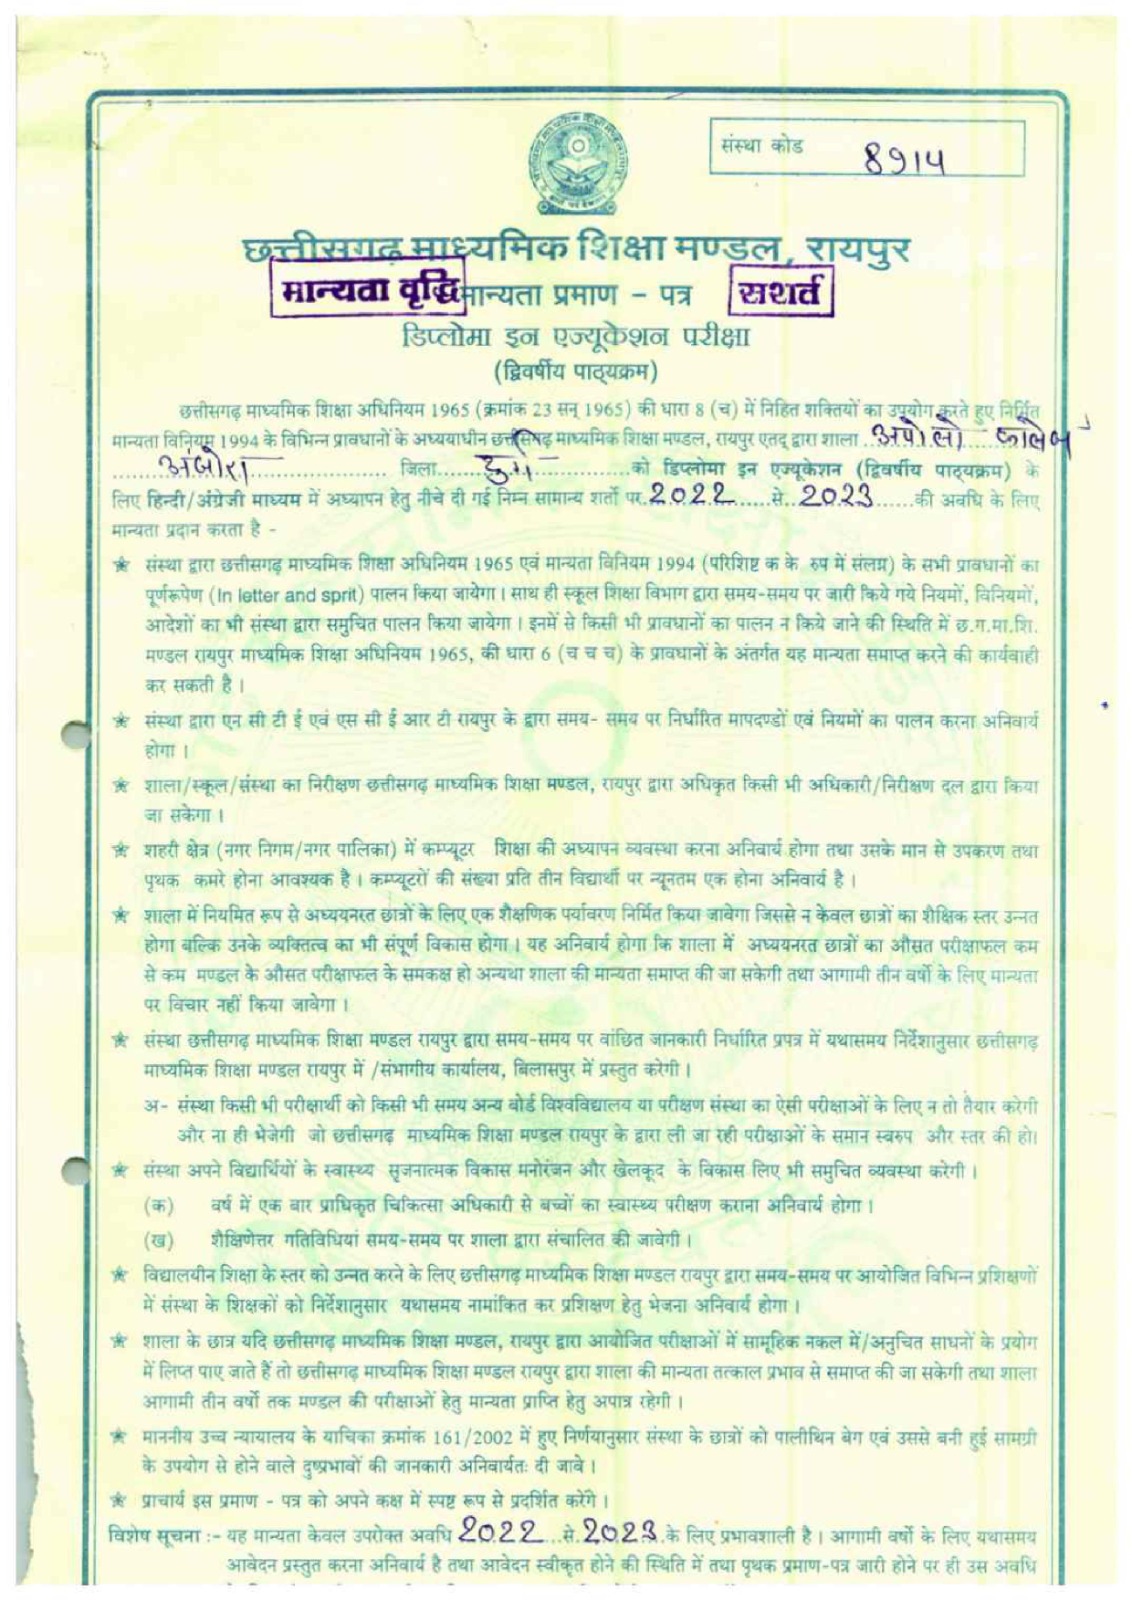 संस्था कोड 8914
छत्तीसगढ़ माध्यमिक शिक्षा मण्डल, रायपुर
मान्यता वृद्धि मान्यता प्रमाण - पत्र सशर्त
डिप्लोमा इन एज्यूकेशन परीक्षा
(द्विवर्षीय पाठ्यक्रम)
छत्तीसगढ़ माध्यमिक शिक्षा अधिनियम 1965 (क्रमांक 23 सन् 1965) की धारा 8 (च) में निहित शक्तियों का उपयोग करते हुए निर्मित
मान्यता विनियम 1994 के विभिन्न प्रावधानों के अध्यधीन छत्तीसगढ़ माध्यमिक शिक्षा मण्डल, रायपुर एतद् द्वारा शाला अपोलो कालेज
अंजोरा जिला दुर्ग को डिप्लोमा इन एज्यूकेशन (द्विवर्षीय पाठ्यक्रम) के
लिए हिन्दी/अंग्रेजी माध्यम में अध्यापन हेतु नीचे दी गई निम्न सामान्य शर्तो पर 2022 से 2023 की अवधि के लिए
मान्यता प्रदान करता है -
★ संस्था द्वारा छत्तीसगढ़ माध्यमिक शिक्षा अधिनियम 1965 एवं मान्यता विनियम 1994 (परिशिष्ट क के रुप में संलग्न) के सभी प्रावधानों का
पूर्णरूपेण (In letter and sprit) पालन किया जायेगा। साथ ही स्कूल शिक्षा विभाग द्वारा समय-समय पर जारी किये गये नियमों, विनियमों,
आदेशों का भी संस्था द्वारा समुचित पालन किया जायेगा। इनमें से किसी भी प्रावधानों का पालन न किये जाने की स्थिति में छ.ग.मा.शि.
मण्डल रायपुर माध्यमिक शिक्षा अधिनियम 1965, की धारा 6 (च च च) के प्रावधानों के अंतर्गत यह मान्यता समाप्त करने की कार्यवाही
कर सकती है।
★ संस्था द्वारा एन सी टी ई एवं एस सी ई आर टी रायपुर के द्वारा समय- समय पर निर्धारित मापदण्डों एवं नियमों का पालन करना अनिवार्य
होगा।
★ शाला/स्कूल/संस्था का निरीक्षण छत्तीसगढ़ माध्यमिक शिक्षा मण्डल, रायपुर द्वारा अधिकृत किसी भी अधिकारी/निरीक्षण दल द्वारा किया
जा सकेगा।
★ शहरी क्षेत्र (नगर निगम/नगर पालिका) में कम्प्यूटर शिक्षा की अध्यापन व्यवस्था करना अनिवार्य होगा तथा उसके मान से उपकरण तथा
पृथक कमरे होना आवश्यक है। कम्प्यूटरों की संख्या प्रति तीन विद्यार्थी पर न्यूनतम एक होना अनिवार्य है।
★ शाला में नियमित रूप से अध्ययनरत छात्रों के लिए एक शैक्षणिक पर्यावरण निर्मित किया जावेगा जिससे न केवल छात्रों का शैक्षिक स्तर उन्नत
होगा बल्कि उनके व्यक्तित्व का भी संपूर्ण विकास होगा। यह अनिवार्य होगा कि शाला में अध्ययनरत छात्रों का औसत परीक्षाफल कम
से कम मण्डल के औसत परीक्षाफल के समकक्ष हो अन्यथा शाला की मान्यता समाप्त की जा सकेगी तथा आगामी तीन वर्षो के लिए मान्यता
पर विचार नहीं किया जावेगा।
★ संस्था छत्तीसगढ़ माध्यमिक शिक्षा मण्डल रायपुर द्वारा समय-समय पर वांछित जानकारी निर्धारित प्रपत्र में यथासमय निर्देशानुसार छत्तीसगढ़
माध्यमिक शिक्षा मण्डल रायपुर में /संभागीय कार्यालय, बिलासपुर में प्रस्तुत करेगी।
अ- संस्था किसी भी परीक्षार्थी को किसी भी समय अन्य बोर्ड विश्वविद्यालय या परीक्षण संस्था का ऐसी परीक्षाओं के लिए न तो तैयार करेगी
और ना ही भेजेगी जो छत्तीसगढ़ माध्यमिक शिक्षा मण्डल रायपुर के द्वारा ली जा रही परीक्षाओं के समान स्वरुप और स्तर की हो।
★ संस्था अपने विद्यार्थियों के स्वास्थ्य सृजनात्मक विकास मनोरंजन और खेलकूद के विकास लिए भी समुचित व्यवस्था करेगी।
(क) वर्ष में एक बार प्राधिकृत चिकित्सा अधिकारी से बच्चों का स्वास्थ्य परीक्षण कराना अनिवार्य होगा।
(ख) शैक्षिणेत्तर गतिविधियां समय-समय पर शाला द्वारा संचालित की जावेगी।
★ विद्यालयीन शिक्षा के स्तर को उन्नत करने के लिए छत्तीसगढ़ माध्यमिक शिक्षा मण्डल रायपुर द्वारा समय-समय पर आयोजित विभिन्न प्रशिक्षणों
में संस्था के शिक्षकों को निर्देशानुसार यथासमय नामांकित कर प्रशिक्षण हेतु भेजना अनिवार्य होगा।
★ शाला के छात्र यदि छत्तीसगढ़ माध्यमिक शिक्षा मण्डल, रायपुर द्वारा आयोजित परीक्षाओं में सामूहिक नकल में/अनुचित साधनों के प्रयोग
में लिप्त पाए जाते हैं तो छत्तीसगढ़ माध्यमिक शिक्षा मण्डल रायपुर द्वारा शाला की मान्यता तत्काल प्रभाव से समाप्त की जा सकेगी तथा शाला
आगामी तीन वर्षो तक मण्डल की परीक्षाओं हेतु मान्यता प्राप्ति हेतु अपात्र रहेगी।
★ माननीय उच्च न्यायालय के याचिका क्रमांक 161/2002 में हुए निर्णयानुसार संस्था के छात्रों को पालीथिन बेग एवं उससे बनी हुई सामग्री
के उपयोग से होने वाले दुष्प्रभावों की जानकारी अनिवार्यतः दी जावे।
★ प्राचार्य इस प्रमाण - पत्र को अपने कक्ष में स्पष्ट रूप से प्रदर्शित करेंगे।
विशेष सूचना :- यह मान्यता केवल उपरोक्त अवधि 2022 से 2023 के लिए प्रभावशाली है। आगामी वर्षो के लिए यथासमय
आवेदन प्रस्तुत करना अनिवार्य है तथा आवेदन स्वीकृत होने की स्थिति में तथा पृथक प्रमाण-पत्र जारी होने पर ही उस अवधि